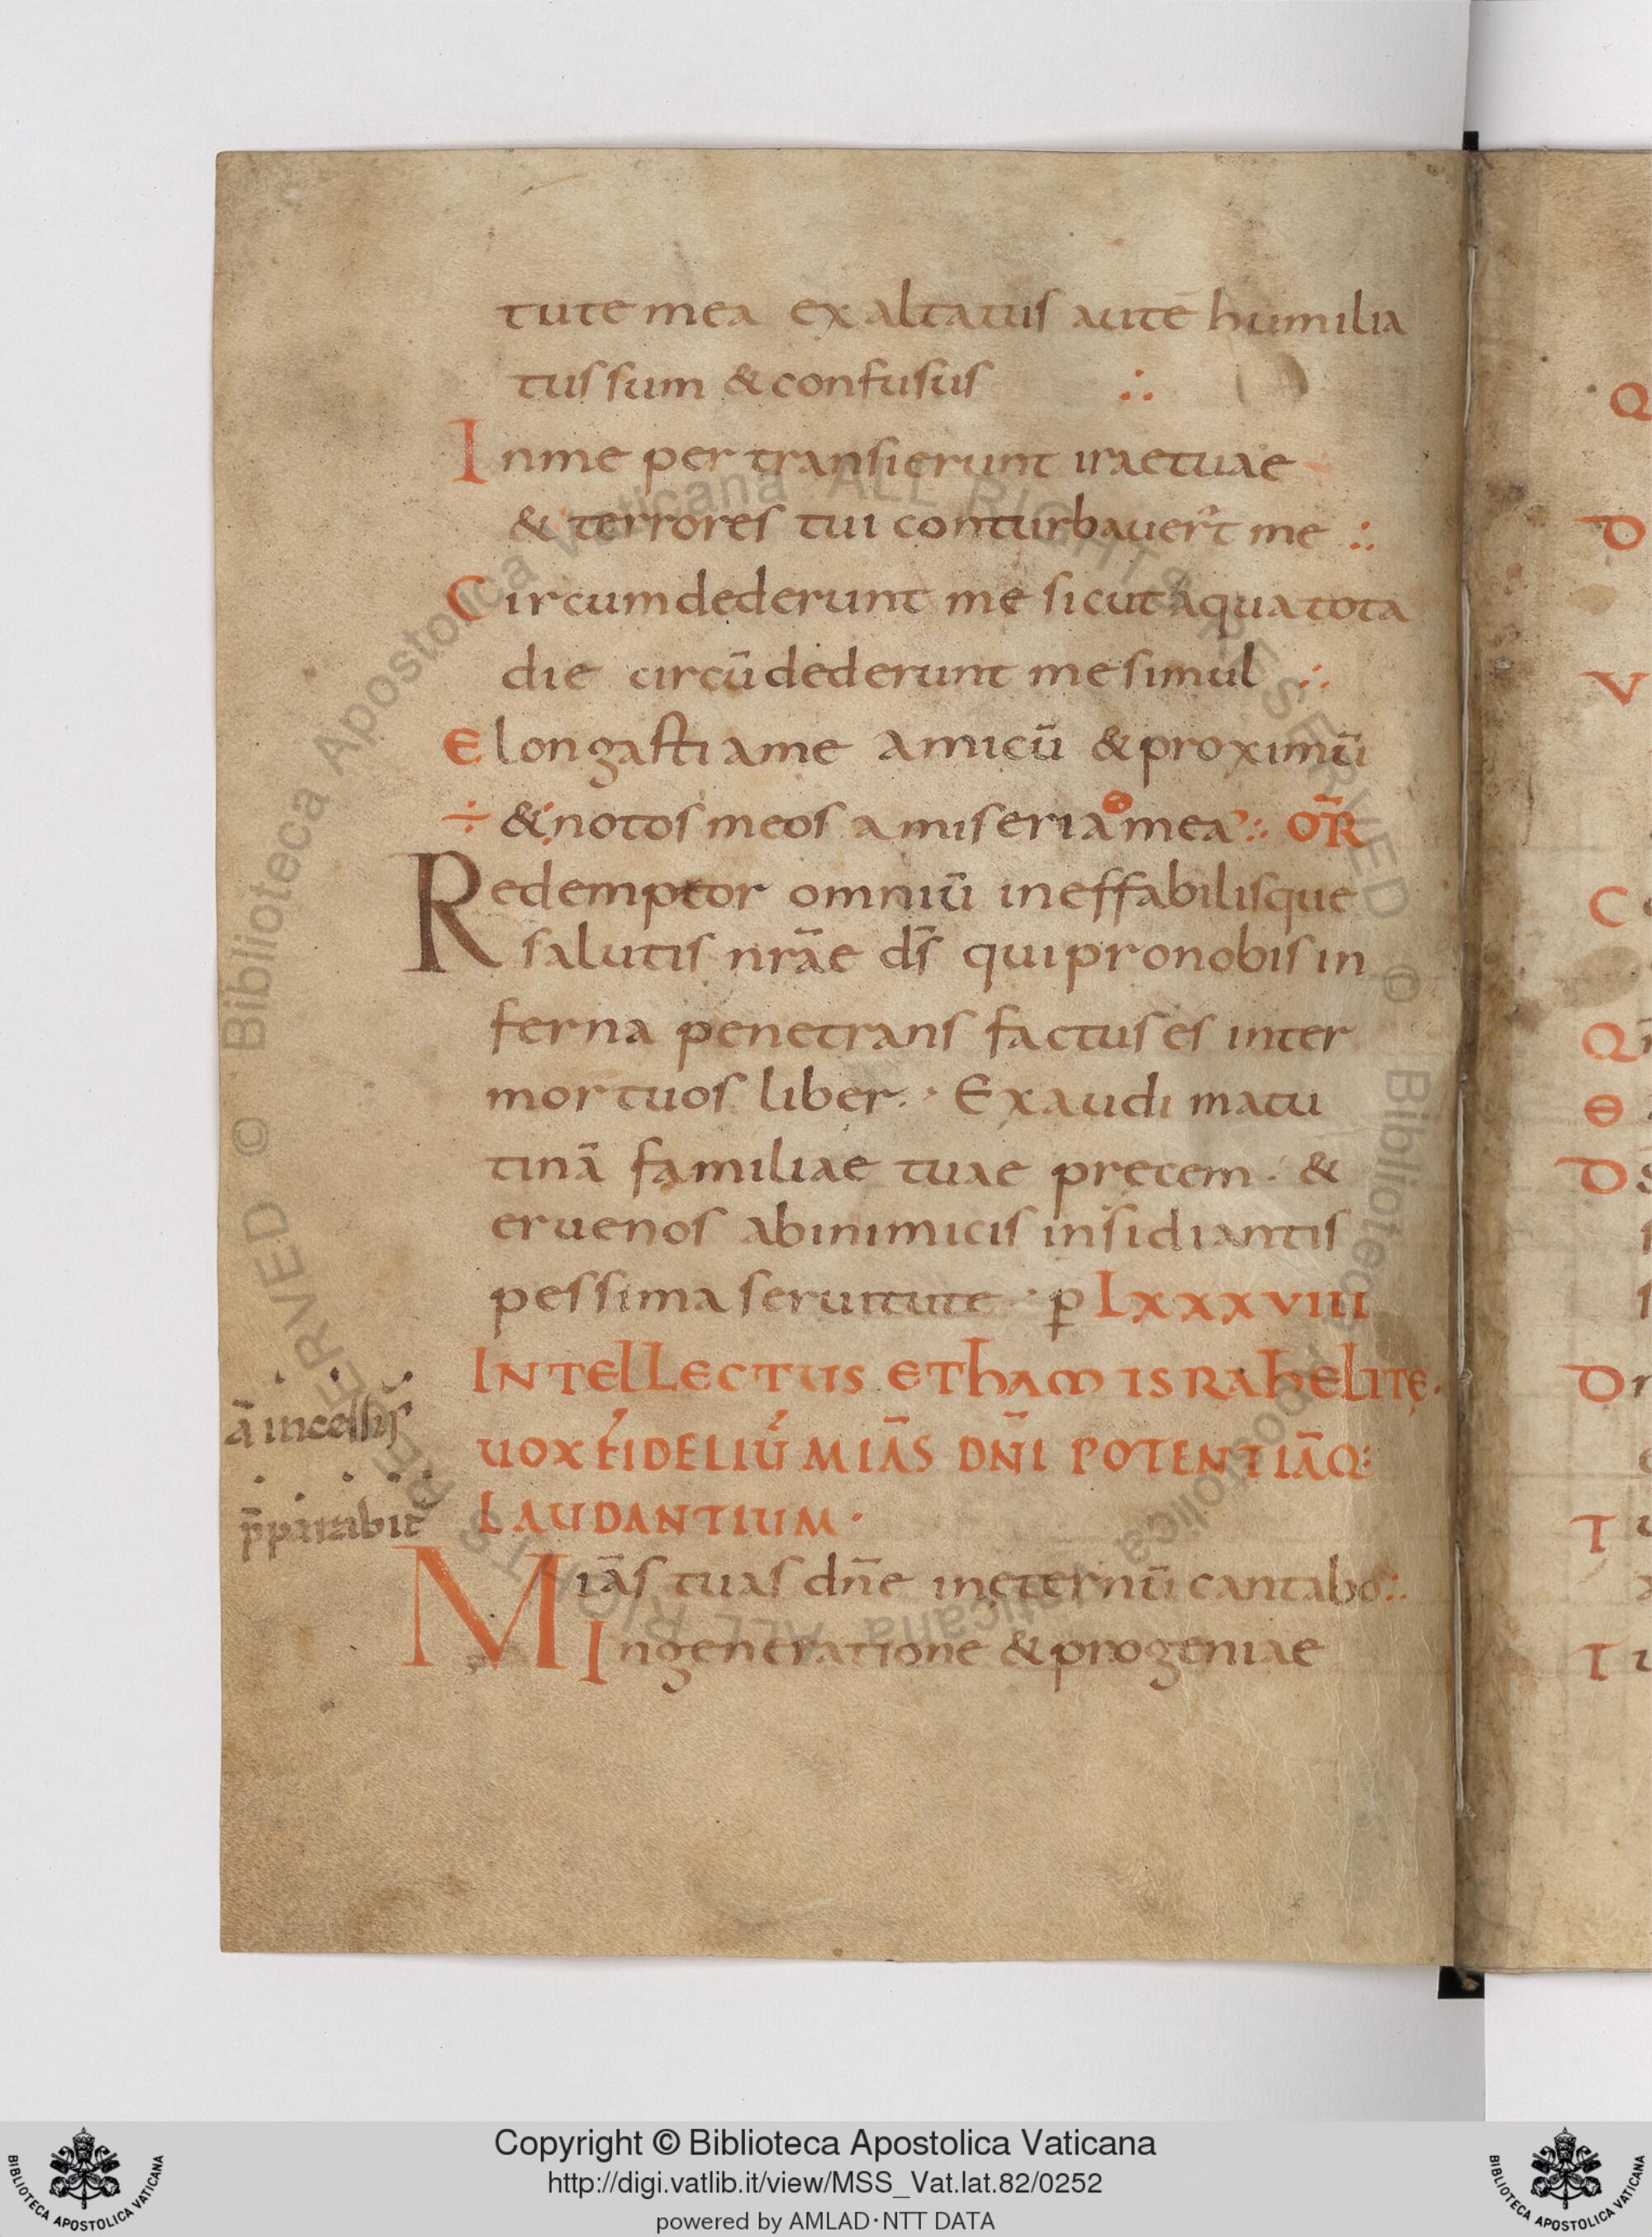 tute mea exaltatus autē humilia
tus sum & confusus ∴
In me per transierunt irae tuae
& terrores tui conturbauer̄t me ∴
Circumdederunt me sicut aqua tota
die circūdederunt me simul ∴
Elongasti a me amicū & proximū
÷ & notos meos a miseria mea ∴ OR̄
Redemptor omniū ineffabilisque
salutis nrāe ds̄ qui pro nobis in
ferna penetrans factus es inter
mortuos liber. Exaudi matu
tinā familiae tuae precem. &
erue nos ab inimicis insidiantis
pessima seruitute · p̱ LXXXVIII
INTELLECTUS ETHAM ISRAHELITĘ.
UOX FIDELIŪ MIĀS DN̄I POTENTIĀQ:
LAUDANTIUM.
ā in cellis
p̄parabit̄
Miās tuas dn̄e in ęternū cantabo ∴
In generatione & progeniae
Copyright © Biblioteca Apostolica Vaticana
http://digi.vatlib.it/view/MSS_Vat.lat.82/0252
powered by AMLAD·NTT DATA